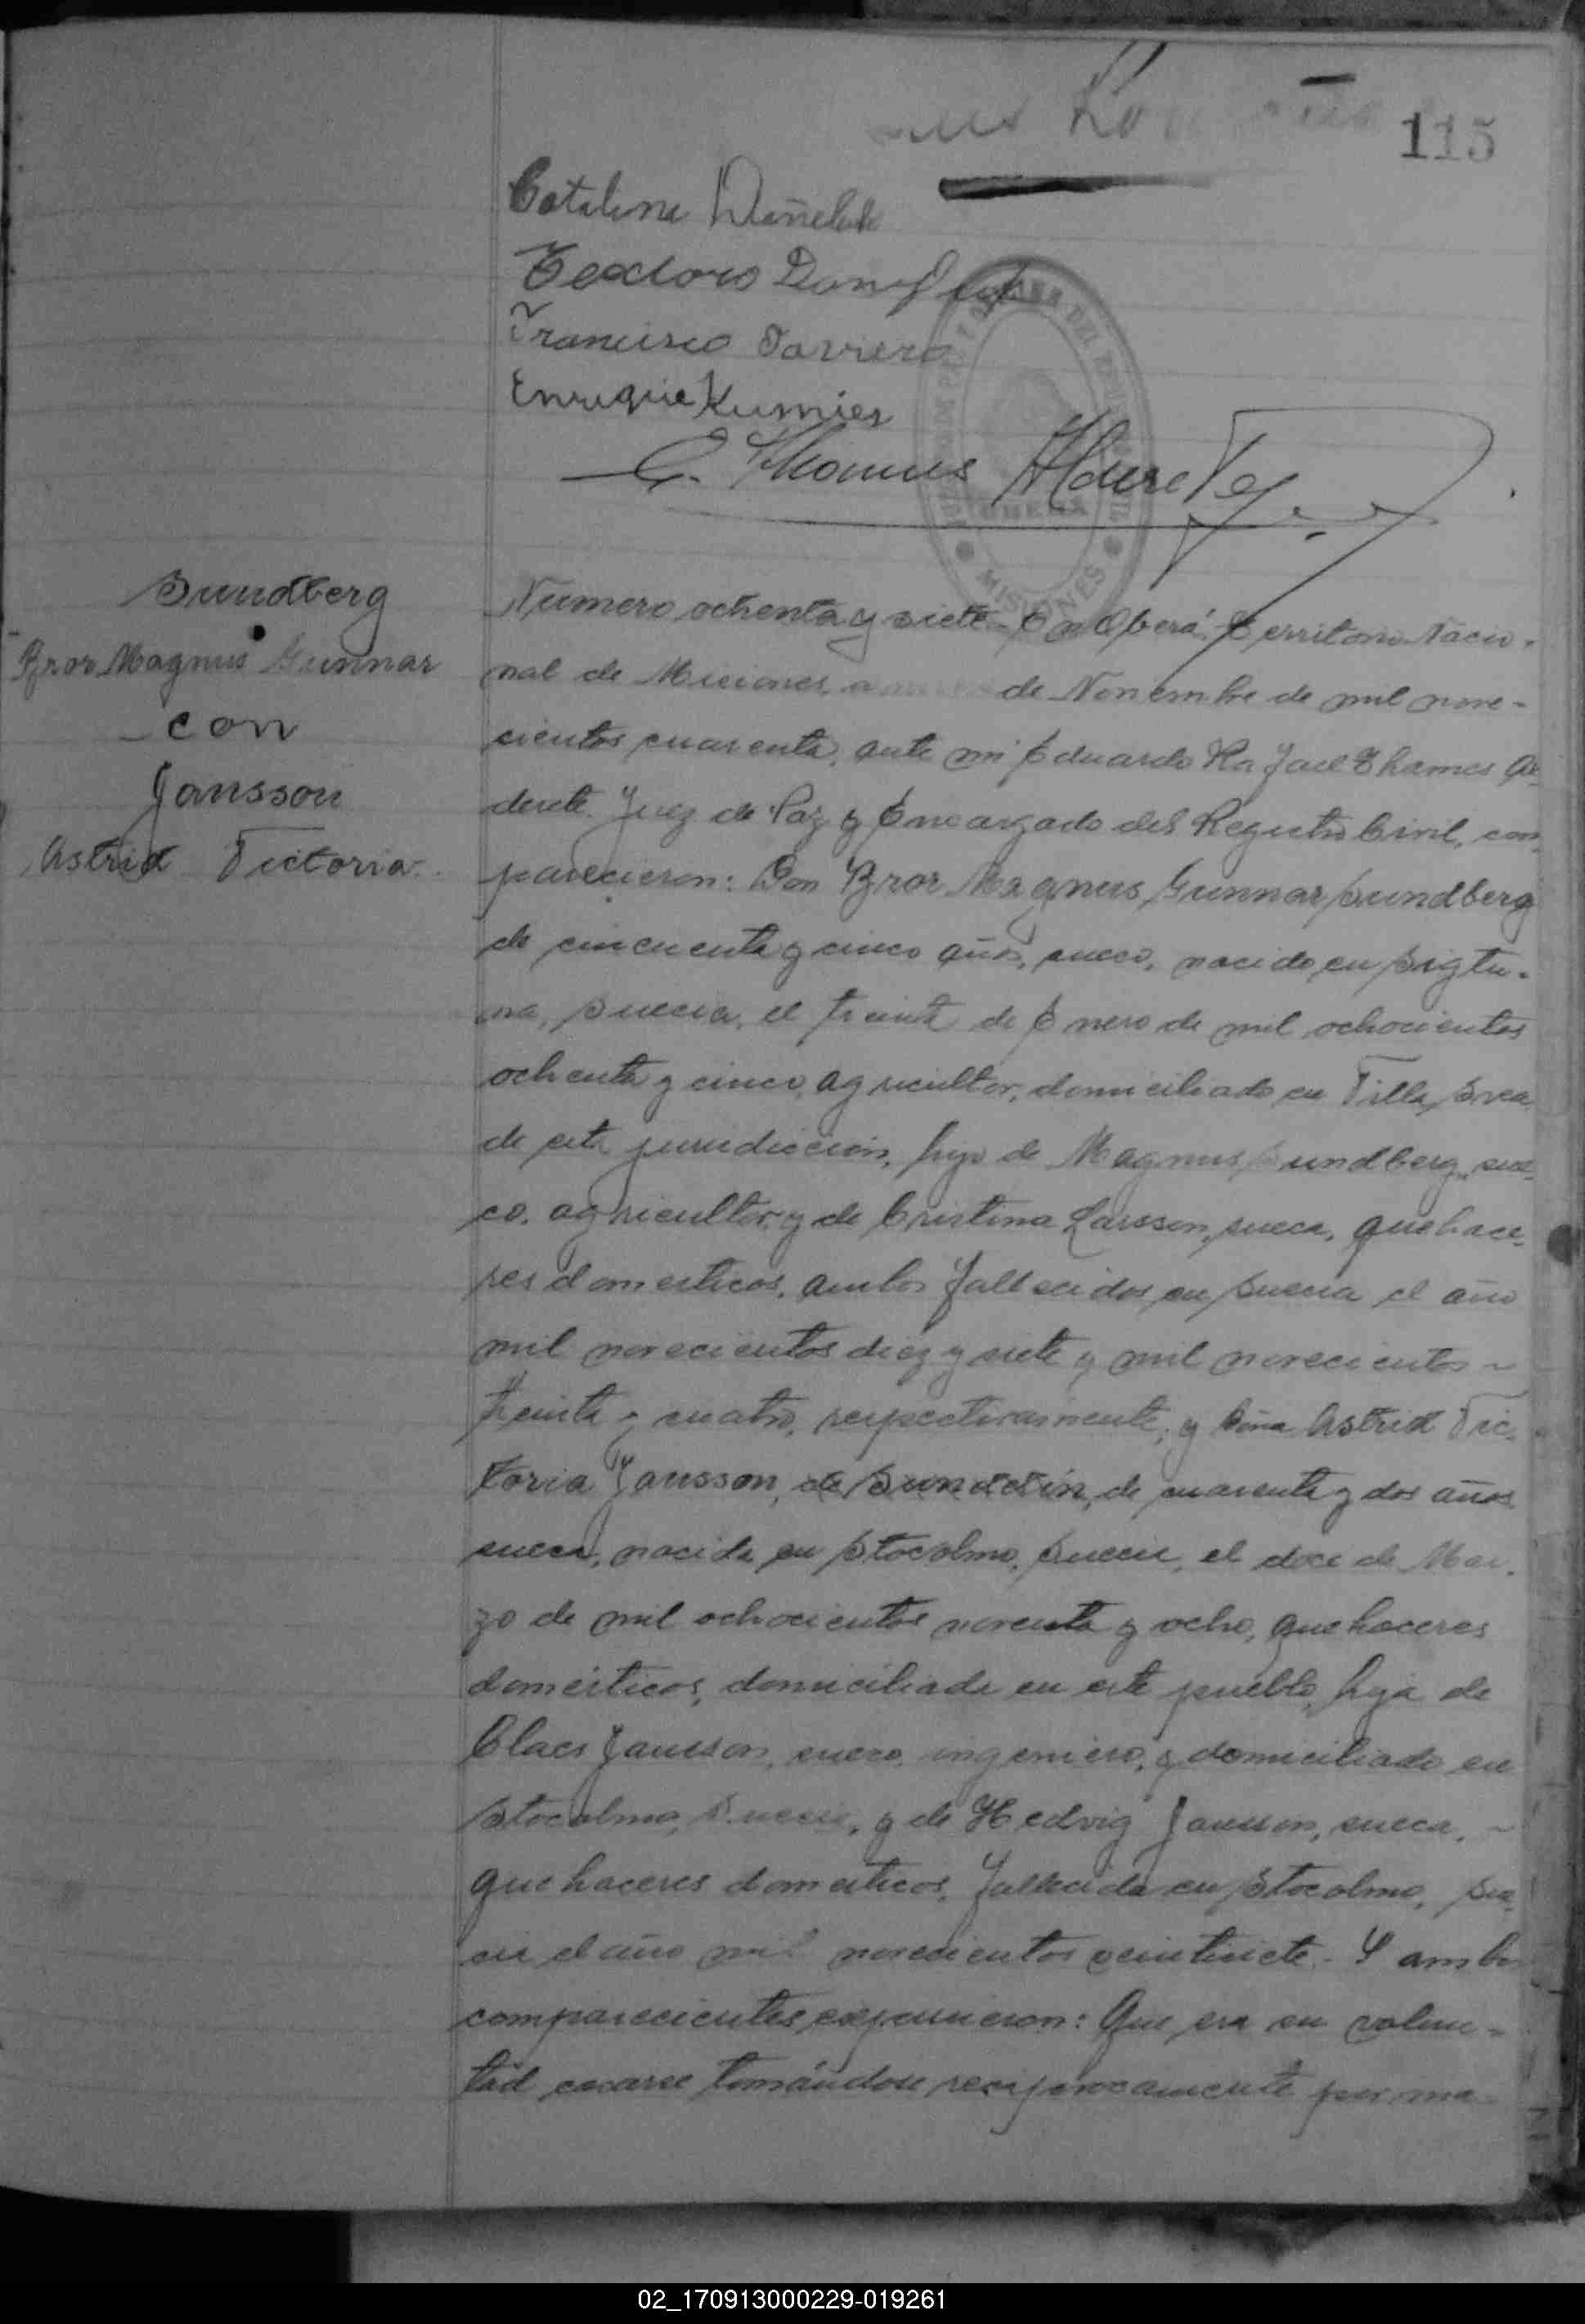 115
Catalina
Teodoro
Francisco Tarriero
Enrique Kumies
E. Thames Alderete
MISIONES
Sundberg
Bror Magnus Gunnar
con
Jansson
Astrid Victoria.
Numero ochenta y siete. En Oberá, Territorio Nacio-
nal de Misiones, a de Noviembre de mil nove-
cientos cuarenta, ante mi Eduardo Rafael Thames Al-
derete. Juez de Paz y Encargado del Registro Civil, com-
parecieron: Don Bror Magnus Gunnar Sundberg
de cincuenta y cinco años, sueco, nacido en Sigtu-
na, Suecia, el treinta de Enero de mil ochocientos
ochenta y cinco, agricultor, domiciliado en Villa Svea
de esta jurisdiccion, hijo de Magnus Sundberg, sue-
co, agricultor, y de Cristina Larsson, sueca, quehace-
res domesticos, ambos fallecidos en Suecia el año
mil novecientos diez y siete y mil novecientos ~
treinta y cuatro, respectivamente; y Doña Astrid Vic-
toria Jansson, de cuarenta y dos años
sueca, nacida en Stocolmo, Suecia, el doce de Mar-
zo de mil ochocientos noventa y ocho, quehaceres
domésticos, domiciliada en este pueblo, hija de
Claes Jansson, sueco, ingeniero, y domiciliado en
Stocolmo, Suecia, y de Hedvig Jansson, sueca, ~
quehaceres domesticos, fallecida en Stocolmo, Sue-
cia el año mil novecientos veintisiete. Y ambos
comparecientes expusieron: Que era su volun-
tad casarse tomándose reciprocamente por ma-
02_170913000229-019261